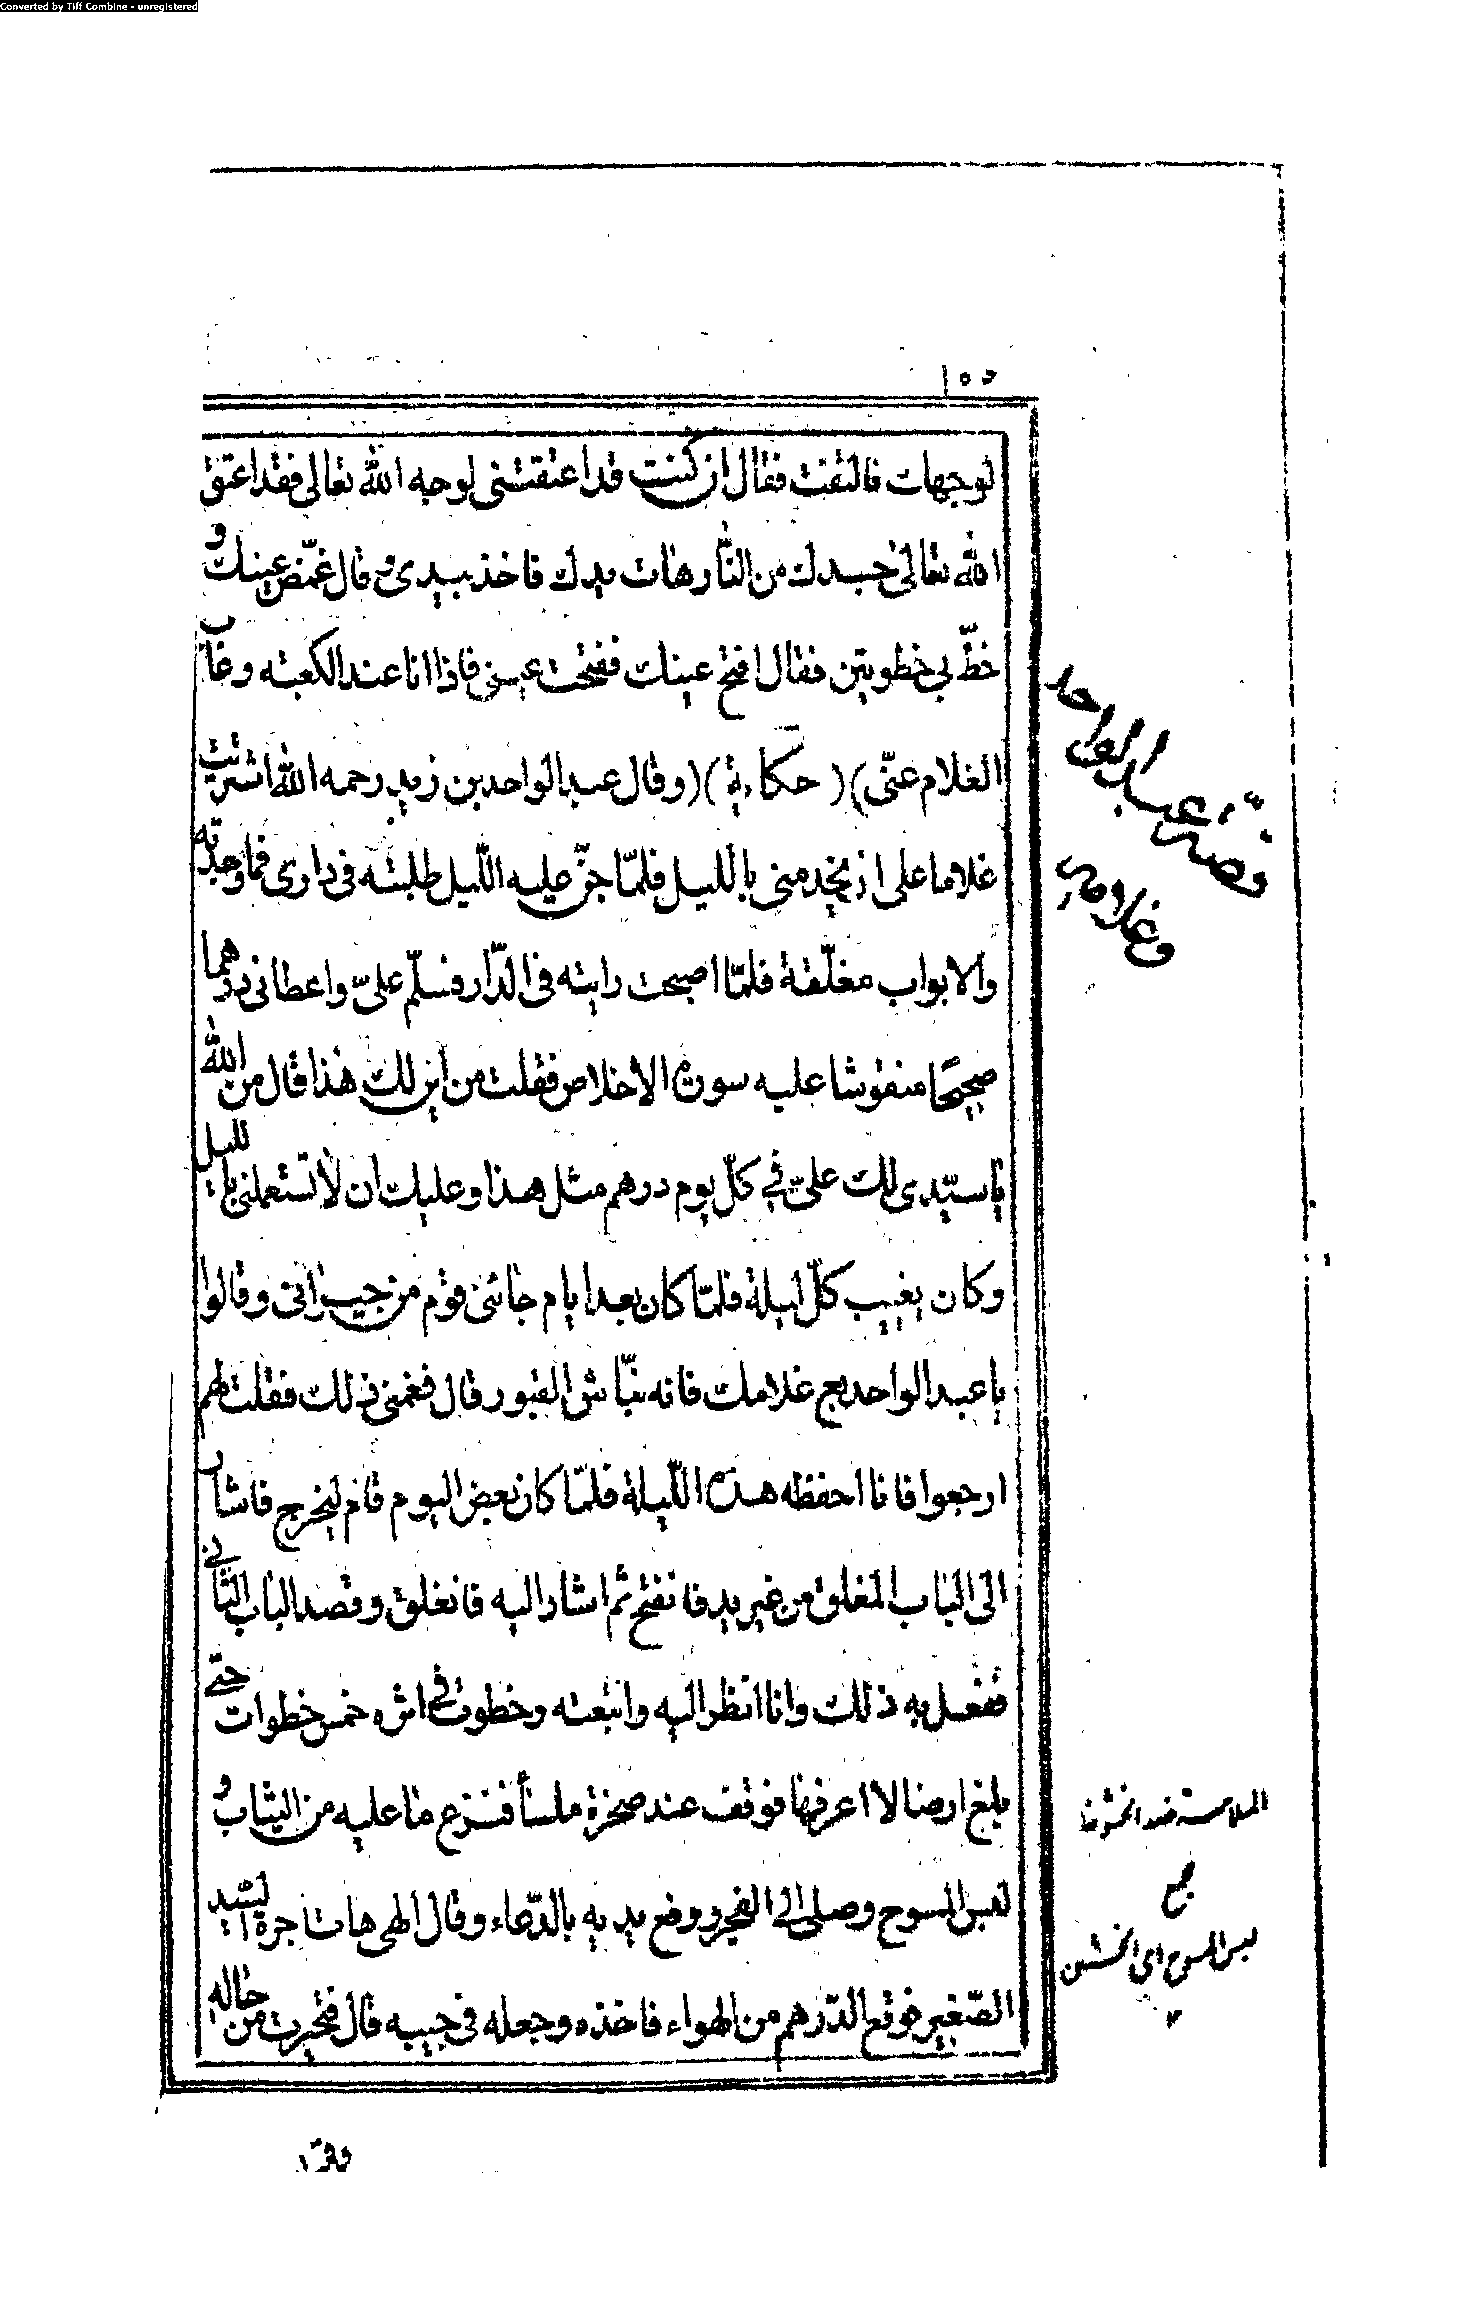 Converted by Tiff Combine - unregistered
١٥٥
لوجهات فالتفت فقال ان كنت قد اعتقتنى لوجه الله تعالى فقد اعتق
الله تعالى جسدك من النّار هات يدك فاخذ بيدى وقال غمّض عينك و
خطّ بى خطوتين فقال افتح عينك ففتحت عينى فاذا انا عند الكعبة وغاب
الغلام عنّى ) ( حكاية ) ( وقال عبد الواحد بن زيد رحمه الله اشتريت
غلاما على ان يخدمنى بالليل فلمّا جنّ عليه اللّيل طلبته فى دارى فما وجدته
والابواب مغلّقة فلمّا اصبحت رايته فى الدّار فسلّم علىّ واعطانى درهما
صحيحا منقوشا عليه سورة الاخلاص فقلت من اين لك هذا قال من الله
يا سيّدى لك علىّ فى كلّ يوم درهم مثل هذا وعليك ان لا تستعملنى بالليل
وكان يغيب كلّ ليلة فلمّا كان بعد ايام جائنى قوم من جيرانى وقالوا
يا عبد الواحد بع غلامك فانه نبّاش القبور قال فغمنى ذلك فقلت لهم
ارجعوا فانا احفظه هذه اللّيلة فلمّا كان بعض اليوم قام ليخرج فاشار
الى الباب المغلق من غير يد فانفتح ثم اشار اليه فانغلق وقصد الباب الثانى
ففعل به ذلك وانا انظر اليه واتبعته وخطوت فى اثره خمس خطوات حتّى
بلغ ارضا لا اعرفها فوقف عند صخرة ملسأ فنزع ما عليه من الثياب و
لبس المسوح وصلى الى الفجر ورفع يديه بالدّعاء وقال الهى هات اجرة السيد
الصّغير فوقع الدّرهم من الهواء فاخذه وجعله فى جيبه قال فتحيرت من حاله
قصّة عبد الواحد
وغلامه
الملامسة ضد الخشونة
مجمع
لبس المسوح اى الخشن